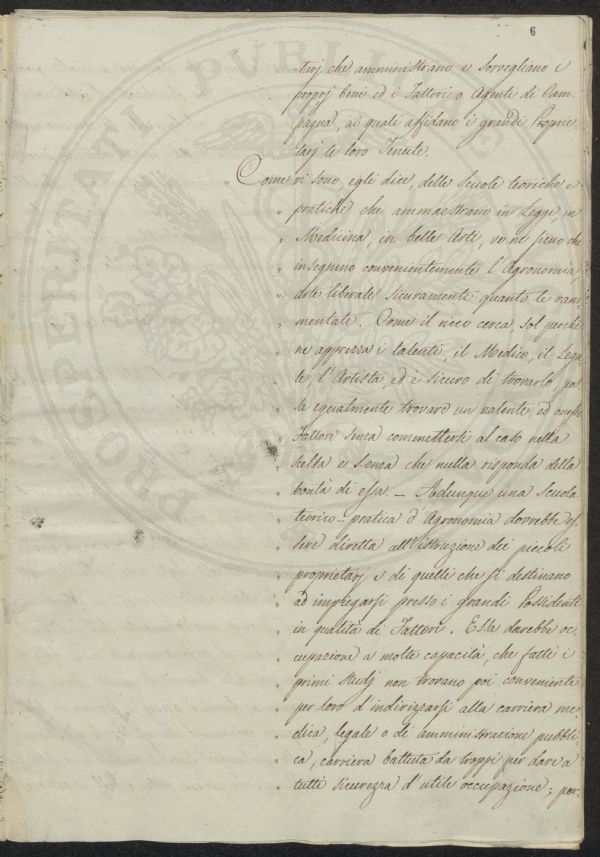 6
tarj che amministrano e sorvegliano i
proprj beni ed i Fattori o Agenti di Cam-
pagna, ai quali affidano i grandi Proprie-
tarj le loro Tenute.
„ Come vi sono, egli dice, delle scuole teoriche e
„ pratiche che ammaestrano in Legge, in
„ Medicina, in belle Arti, ve ne sieno che
„ insegnino convenientemente l'Agronomia,
„ Arte liberale sicuramente quanto le ram-
„ mentate. Come il ricco cerca, sol perchè
„ ne apprezza i talenti, il Medico, il Lega-
„ le, l'Artista, ed è sicuro di trovarlo, pos-
„ sa egualmente trovare un valente ed onesto
„ Fattore senza commettersi al caso nella
„ scelta e senza che nulla risponda della
„ bontà di essa. — Adunque una scuola
„ teorico-pratica d'Agronomia dovrebbe es-
„ sere diretta all'istruzione dei piccoli
„ proprietarj e di quelli che si destinano
„ ad impiegarsi presso i grandi Possidenti
„ in qualità di Fattori. Essa darebbe oc-
„ cupazione a molte capacità, che fatti i
„ primi studj non trovano poi conveniente
„ per loro d'indirizzarsi alla carriera me-
„ dica, legale o di amministrazione pubbli-
„ ca, carriera battuta da troppi per dare a
„ tutti sicurezza d'utile occupazione; por-
PROSPERITATI PVBLICAE